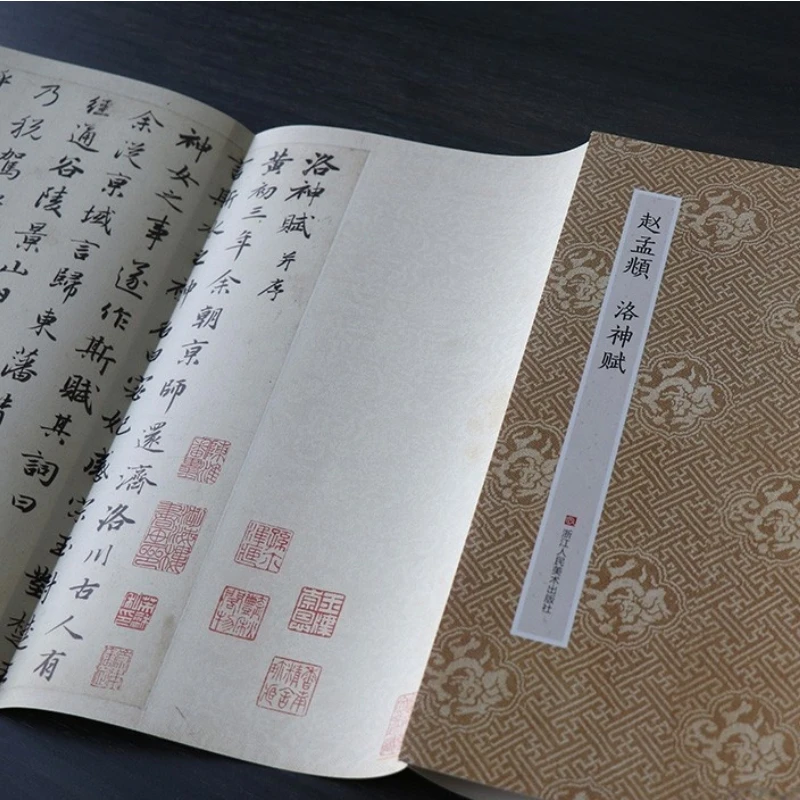 赵孟頫 洛神赋
浙江人民美术出版社
洛神賦 并序
黄初三年余朝京師還濟洛川古人有
言斯水之神名曰宓妃感宋玉對楚王
神女之事遂作斯賦其詞曰
余從京域言歸東藩背
經通谷陵景山日
乃税駕
乎